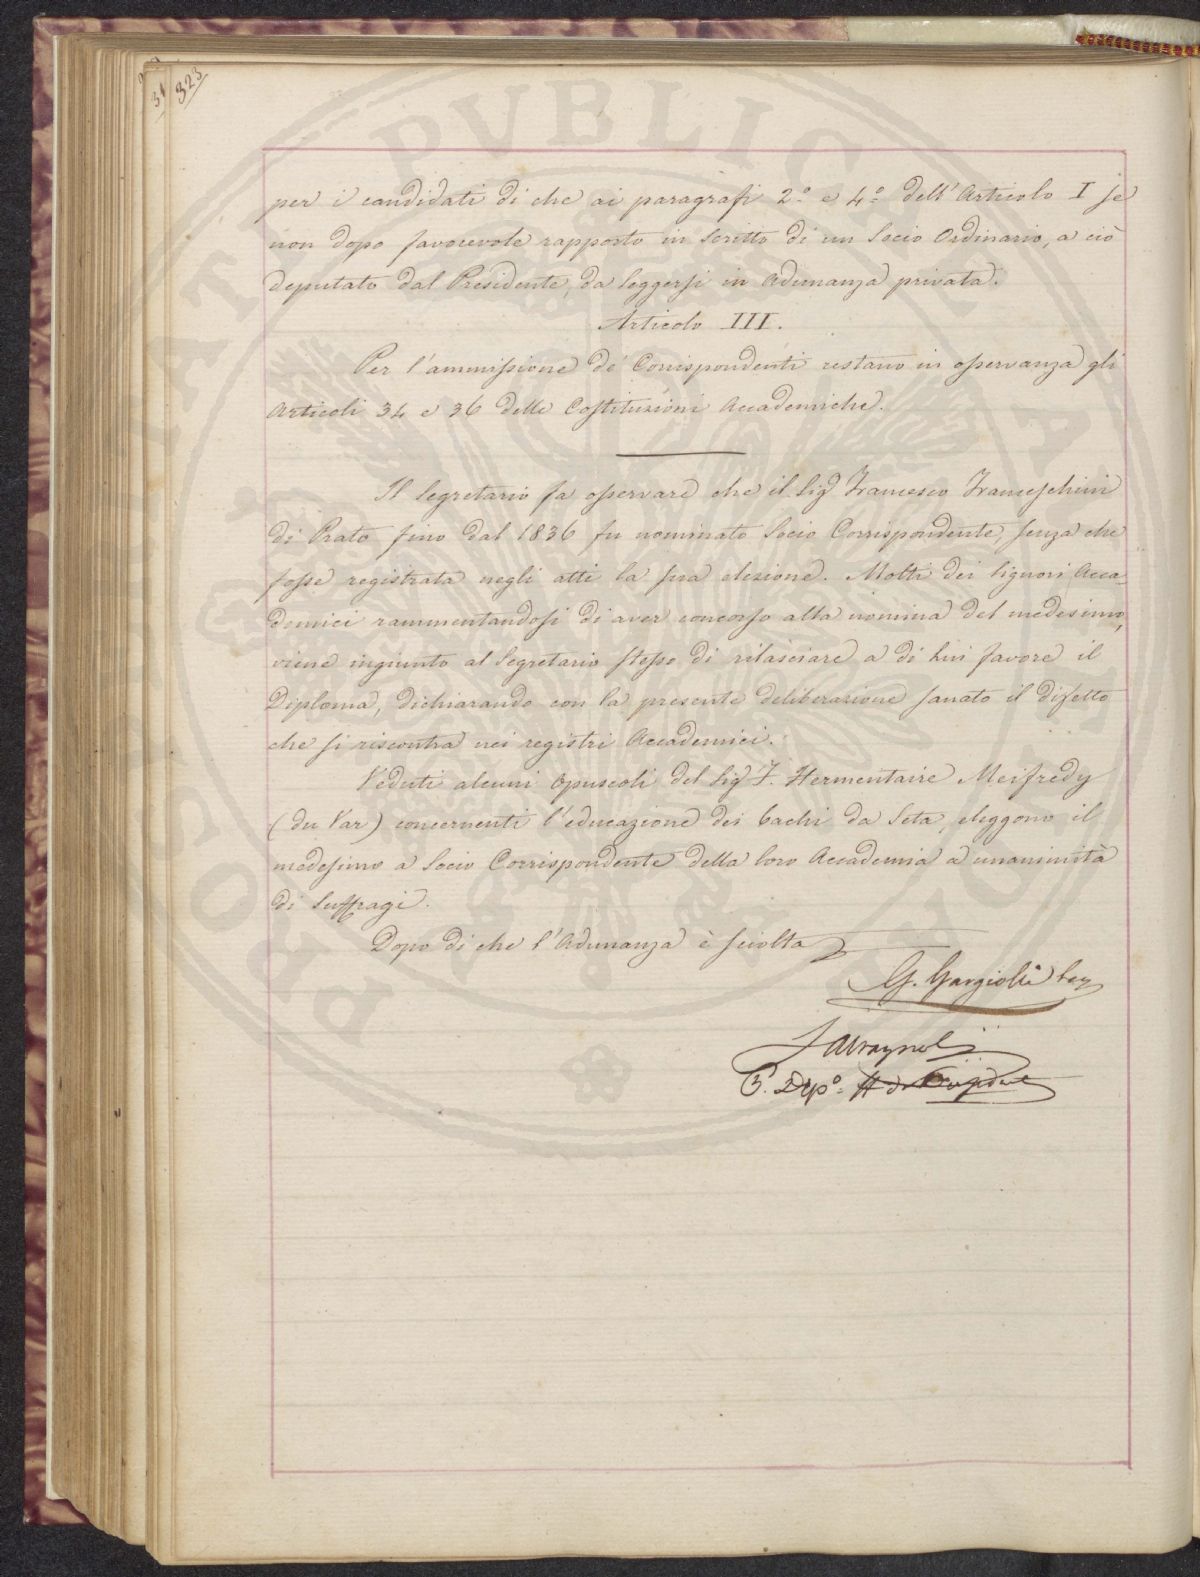 323
31
per i candidati di che ai paragrafi 2.º e 4.º dell'Articolo I se
non dopo favorevole rapporto in scritto di un Socio Ordinario, a ciò
deputato dal Presidente, da leggersi in Adunanza privata.
Articolo III.
Per l'ammissione de' Corrispondenti restano in osservanza gli
Articoli 34 e 36 delle Costituzioni Accademiche.
Il Segretario fa osservare che il Sig.r Francesco Franceschini
di Prato fino dal 1836 fu nominato Socio Corrispondente, senza che
fosse registrata negli atti la sua elezione. Molti dei Signori Acca-
demici rammentandosi di aver concorso alla nomina del medesimo,
viene ingiunto al Segretario stesso di rilasciare a di lui favore il
Diploma, dichiarando con la presente deliberazione sanato il difetto
che si riscontra nei registri Accademici.
Veduti alcuni opuscoli del Sig.r F. Hermentaire Meifredy
(du Var) concernenti l'educazione dei bachi da Seta, eleggono il
medesimo a Socio Corrispondente della loro Accademia a unanimità
di Suffragi.
Dopo di che l'Adunanza è sciolta
G. Gargiolli Seg.
Salvagnoli
3.º Dep.º